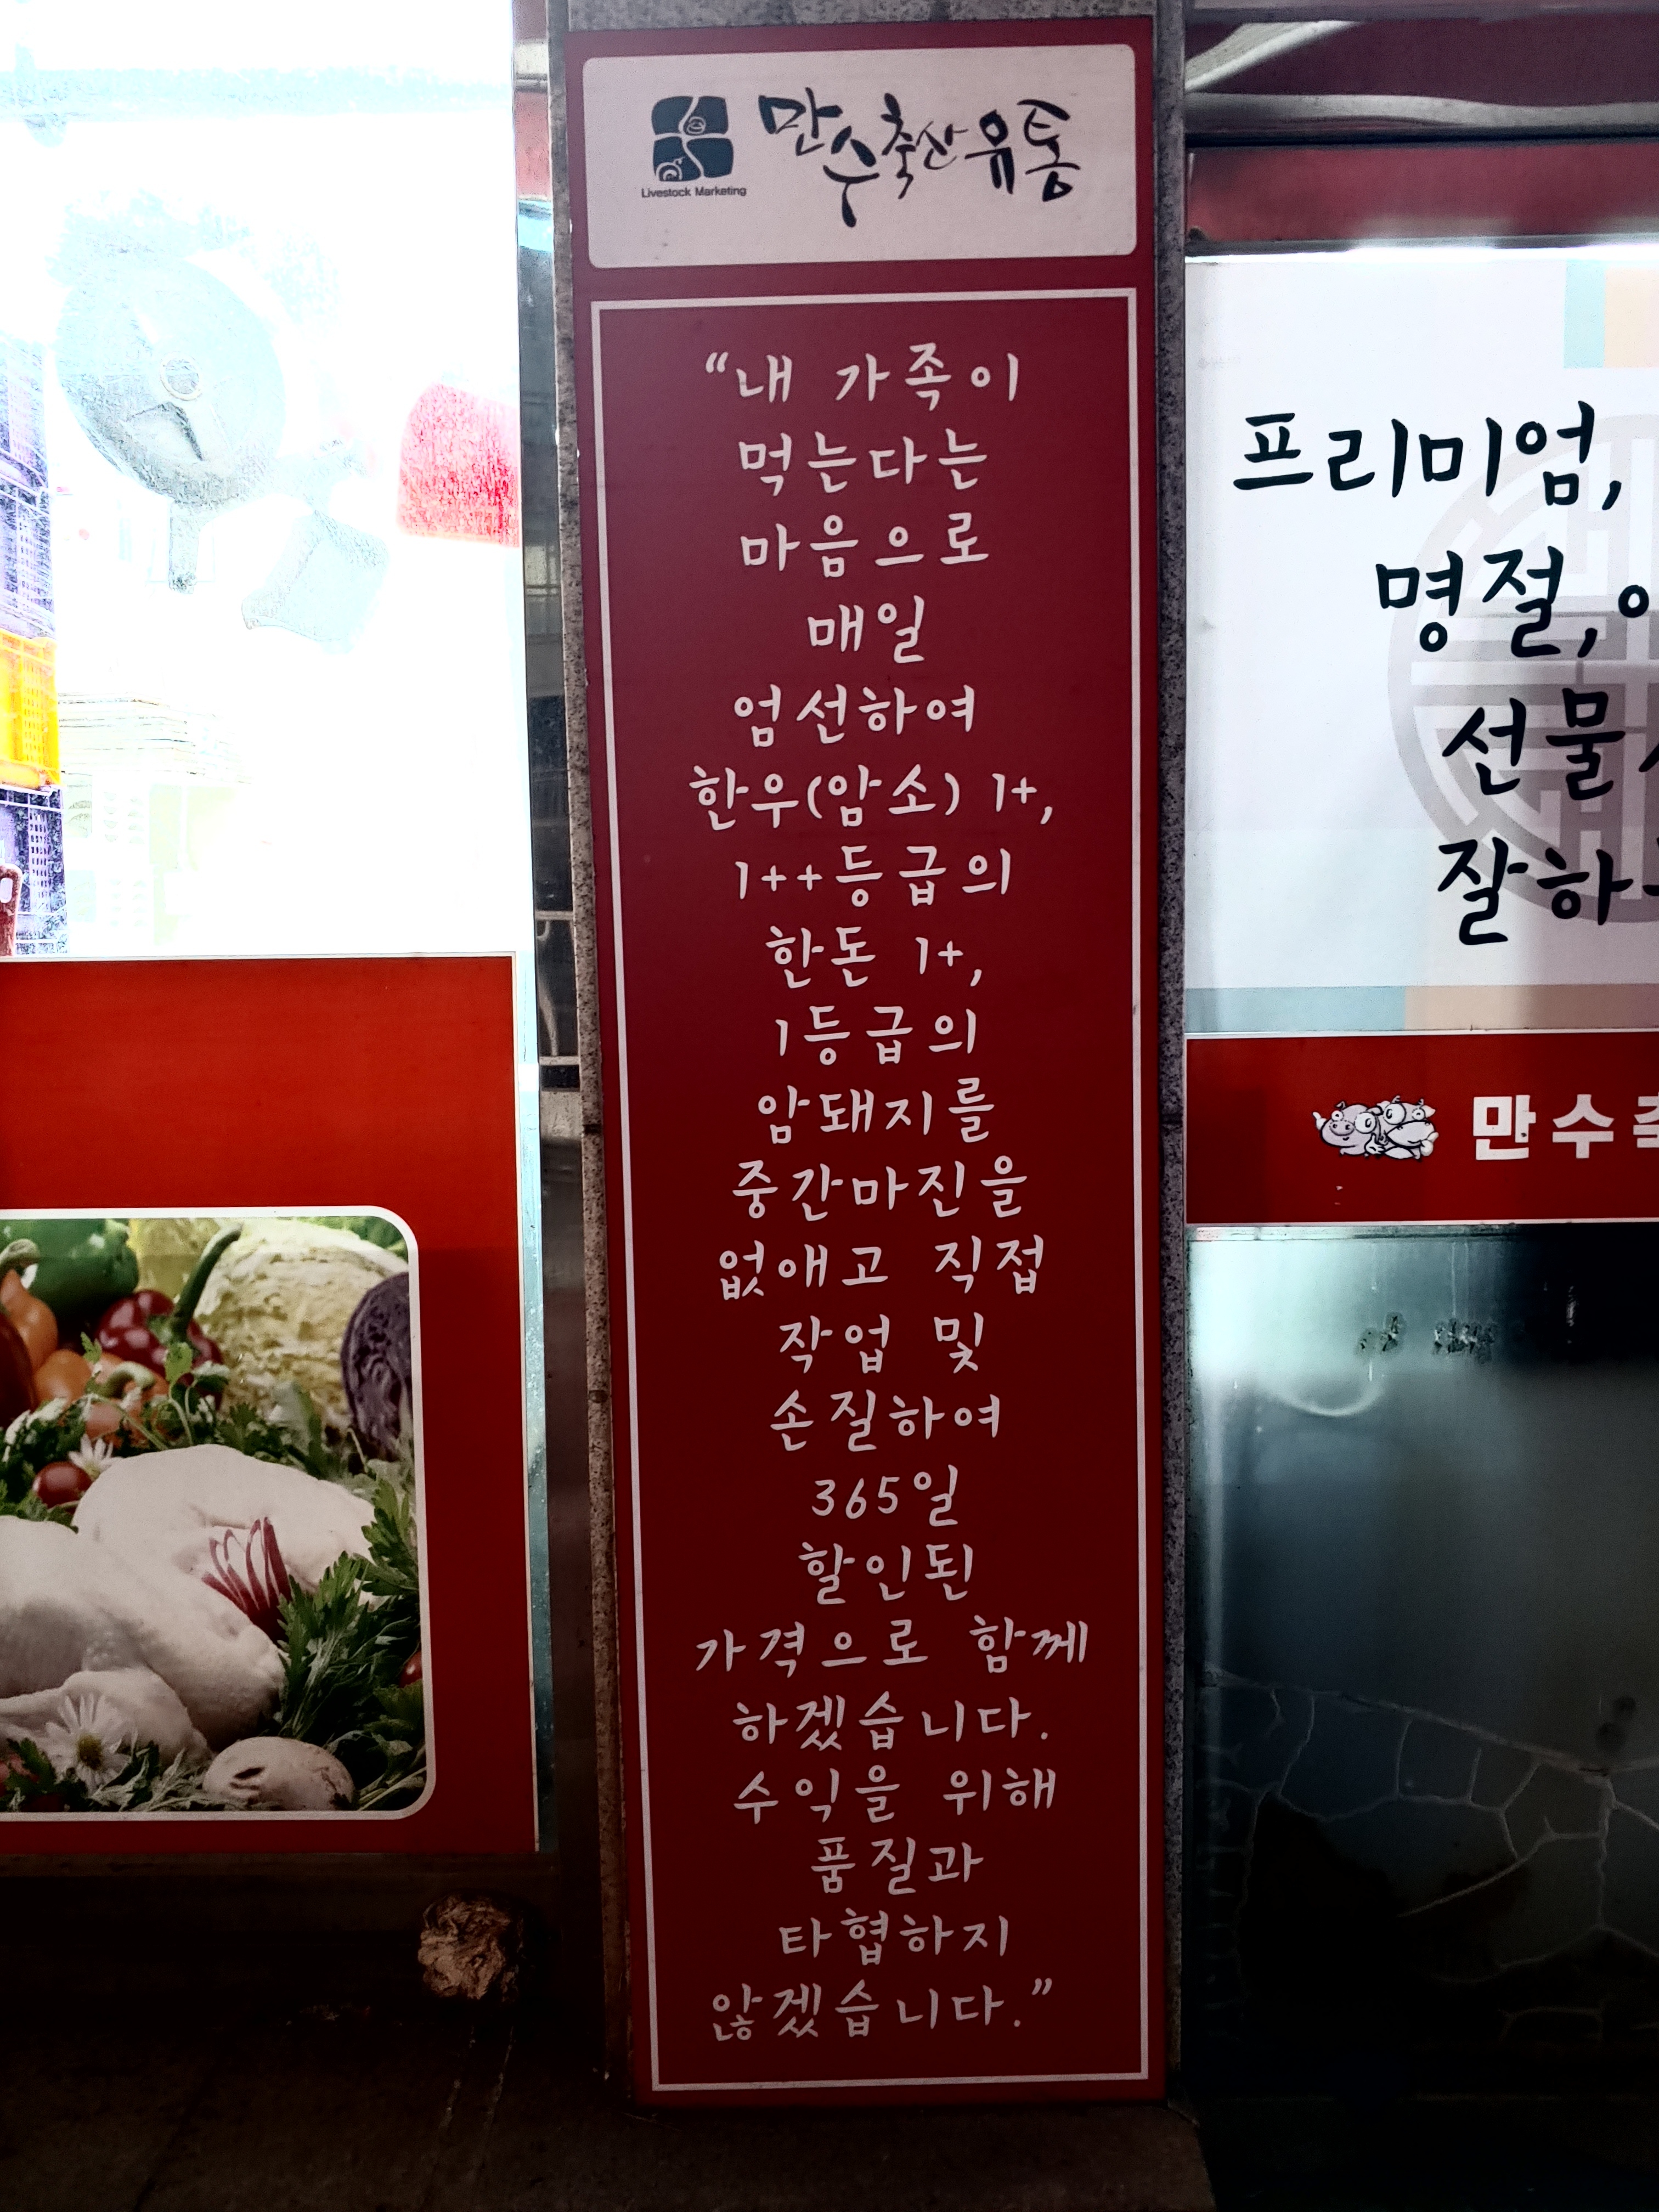 만수축산유통
Livestock Marketing
“내 가족이
먹는다는
마음으로
매일
엄선하여
한우(암소) 1+,
1++등급의
한돈 1+,
1등급의
암돼지를
중간마진을
없애고 직접
작업 및
손질하여
365일
할인된
가격으로 함께
하겠습니다.
수익을 위해
품질과
타협하지
않겠습니다.”
프리미엄,
명절,
선물
잘하
만수